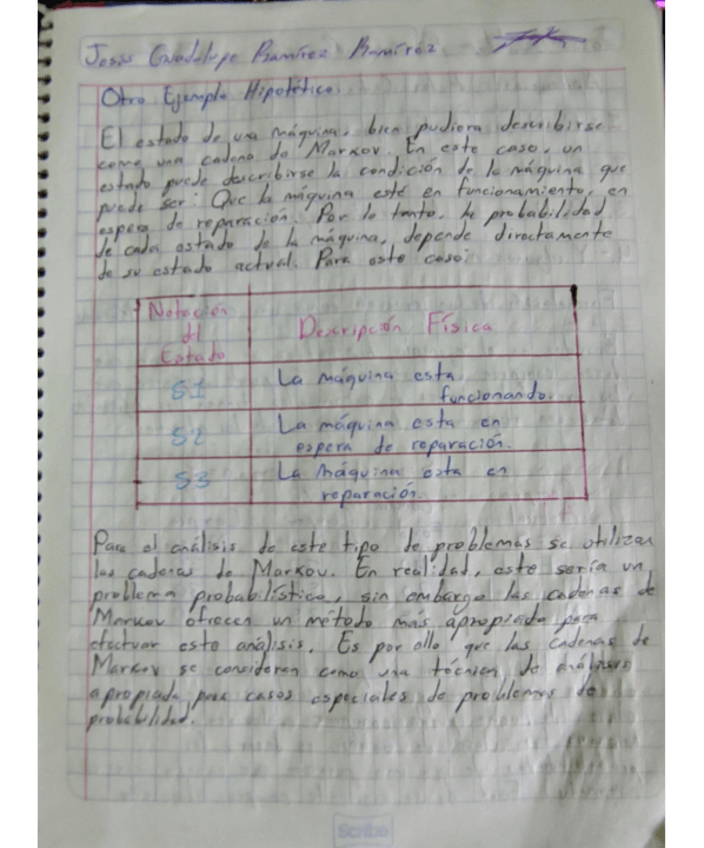 Jesús Guadalupe Ramírez Ramírez
Otro Ejemplo Hipotético.
El estado de una máquina, bien pudiera describirse
como una cadena de Markov. En este caso, un
estado puede describirse la condición de la máquina que
puede ser: Que la máquina esté en funcionamiento, en
espera de reparación. Por lo tanto, la probabilidad
de cada estado de la máquina, depende directamente
de su estado actual. Para este caso:
Notación
del
Estado
Descripción Física
S1
La máquina esta
funcionando.
S2
La máquina esta en
espera de reparación.
S3
La máquina esta en
reparación.
Para el análisis de este tipo de problemas se utilizan
las cadenas de Markov. En realidad, este sería un
problema probabilístico, sin embargo las cadenas de
Markov ofrecen un método más apropiado para
efectuar este análisis. Es por ello que las cadenas de
Markov se consideran como una técnica de análisis
apropiada para casos especiales de problemas de
probabilidad.
Scribe